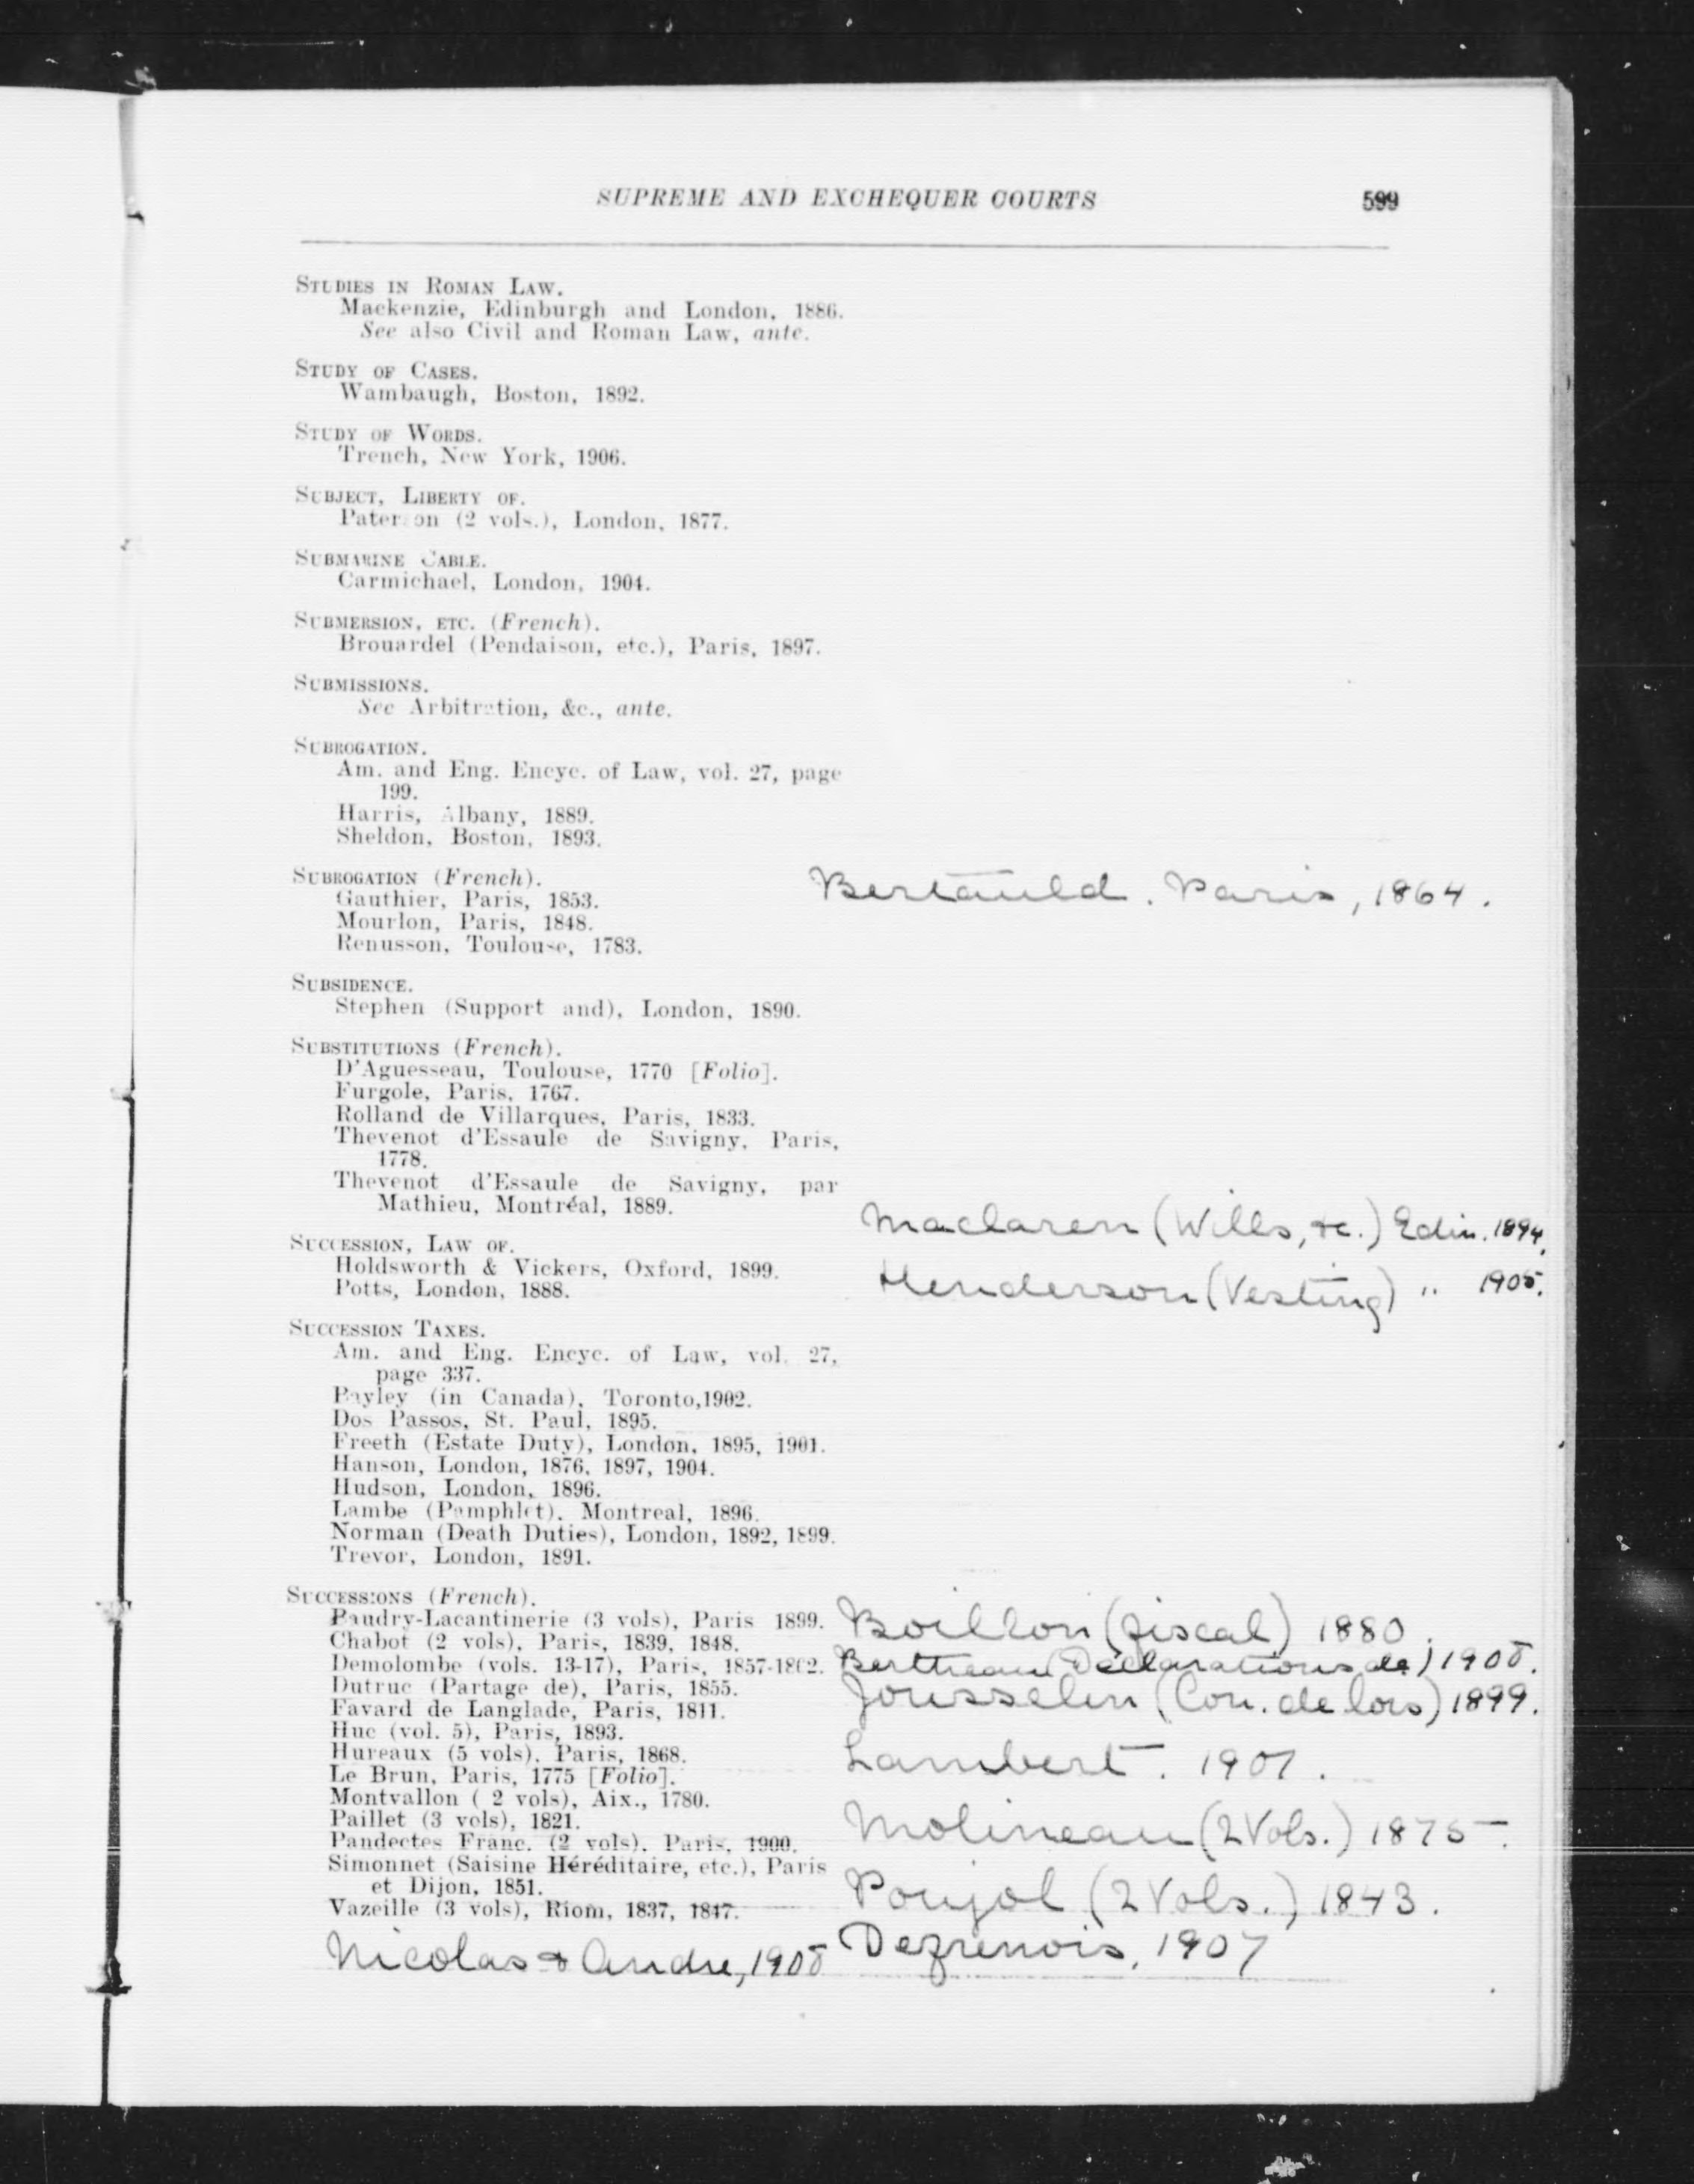 SUPREME AND EXCHEQUER COURTS 599
STUDIES IN ROMAN LAW.
Mackenzie, Edinburgh and London, 1886.
See also Civil and Roman Law, ante.
STUDY OF CASES.
Wambaugh, Boston, 1892.
STUDY OF WORDS.
Trench, New York, 1906.
SUBJECT, LIBERTY OF.
Paterson (2 vols.), London, 1877.
SUBMARINE CABLE.
Carmichael, London, 1904.
SUBMERSION, ETC. (French).
Brouardel (Pendaison, etc.), Paris, 1897.
SUBMISSIONS.
See Arbitration, &c., ante.
SUBROGATION.
Am. and Eng. Encyc. of Law, vol. 27, page
199.
Harris, Albany, 1889.
Sheldon, Boston, 1893.
SUBROGATION (French).
Bertauld. Paris, 1864.
Gauthier, Paris, 1853.
Mourlon, Paris, 1848.
Renusson, Toulouse, 1783.
SUBSIDENCE.
Stephen (Support and), London, 1890.
SUBSTITUTIONS (French).
D'Aguesseau, Toulouse, 1770 [Folio].
Furgole, Paris, 1767.
Rolland de Villarques, Paris, 1833.
Thevenot d'Essaule de Savigny, Paris,
1778.
Thevenot d'Essaule de Savigny, par
Mathieu, Montréal, 1889.
Maclaren (Wills, &c.) Edin. 1894.
SUCCESSION, LAW OF.
Holdsworth & Vickers, Oxford, 1899.
Henderson (Vesting) " 1905.
Potts, London, 1888.
SUCCESSION TAXES.
Am. and Eng. Encyc. of Law, vol. 27,
page 337.
Bayley (in Canada), Toronto,1902.
Dos Passos, St. Paul, 1895.
Freeth (Estate Duty), London, 1895, 1901.
Hanson, London, 1876, 1897, 1904.
Hudson, London, 1896.
Lambe (Pamphlet), Montreal, 1896.
Norman (Death Duties), London, 1892, 1899.
Trevor, London, 1891.
SUCCESSIONS (French).
Baudry-Lacantinerie (3 vols), Paris 1899.
Boillon (fiscal) 1880.
Chabot (2 vols), Paris, 1839, 1848.
Demolombe (vols. 13-17), Paris, 1857-1862.
Bertheau (Déclarations de) 1905.
Dutruc (Partage de), Paris, 1855.
Jousselin (Con. de lois) 1899.
Favard de Langlade, Paris, 1811.
Huc (vol. 5), Paris, 1893.
Hureaux (5 vols), Paris, 1868.
Lambert. 1901.
Le Brun, Paris, 1775 [Folio].
Montvallon ( 2 vols), Aix., 1780.
Paillet (3 vols), 1821.
Molineau (2 Vols.) 1875.
Pandectes Franc. (2 vols), Paris, 1900.
Simonnet (Saisine Héréditaire, etc.), Paris
et Dijon, 1851.
Poujol (2 Vols.) 1843.
Vazeille (3 vols), Riom, 1837, 1847.
Nicolas & Andre, 1905
Defrenois, 1907